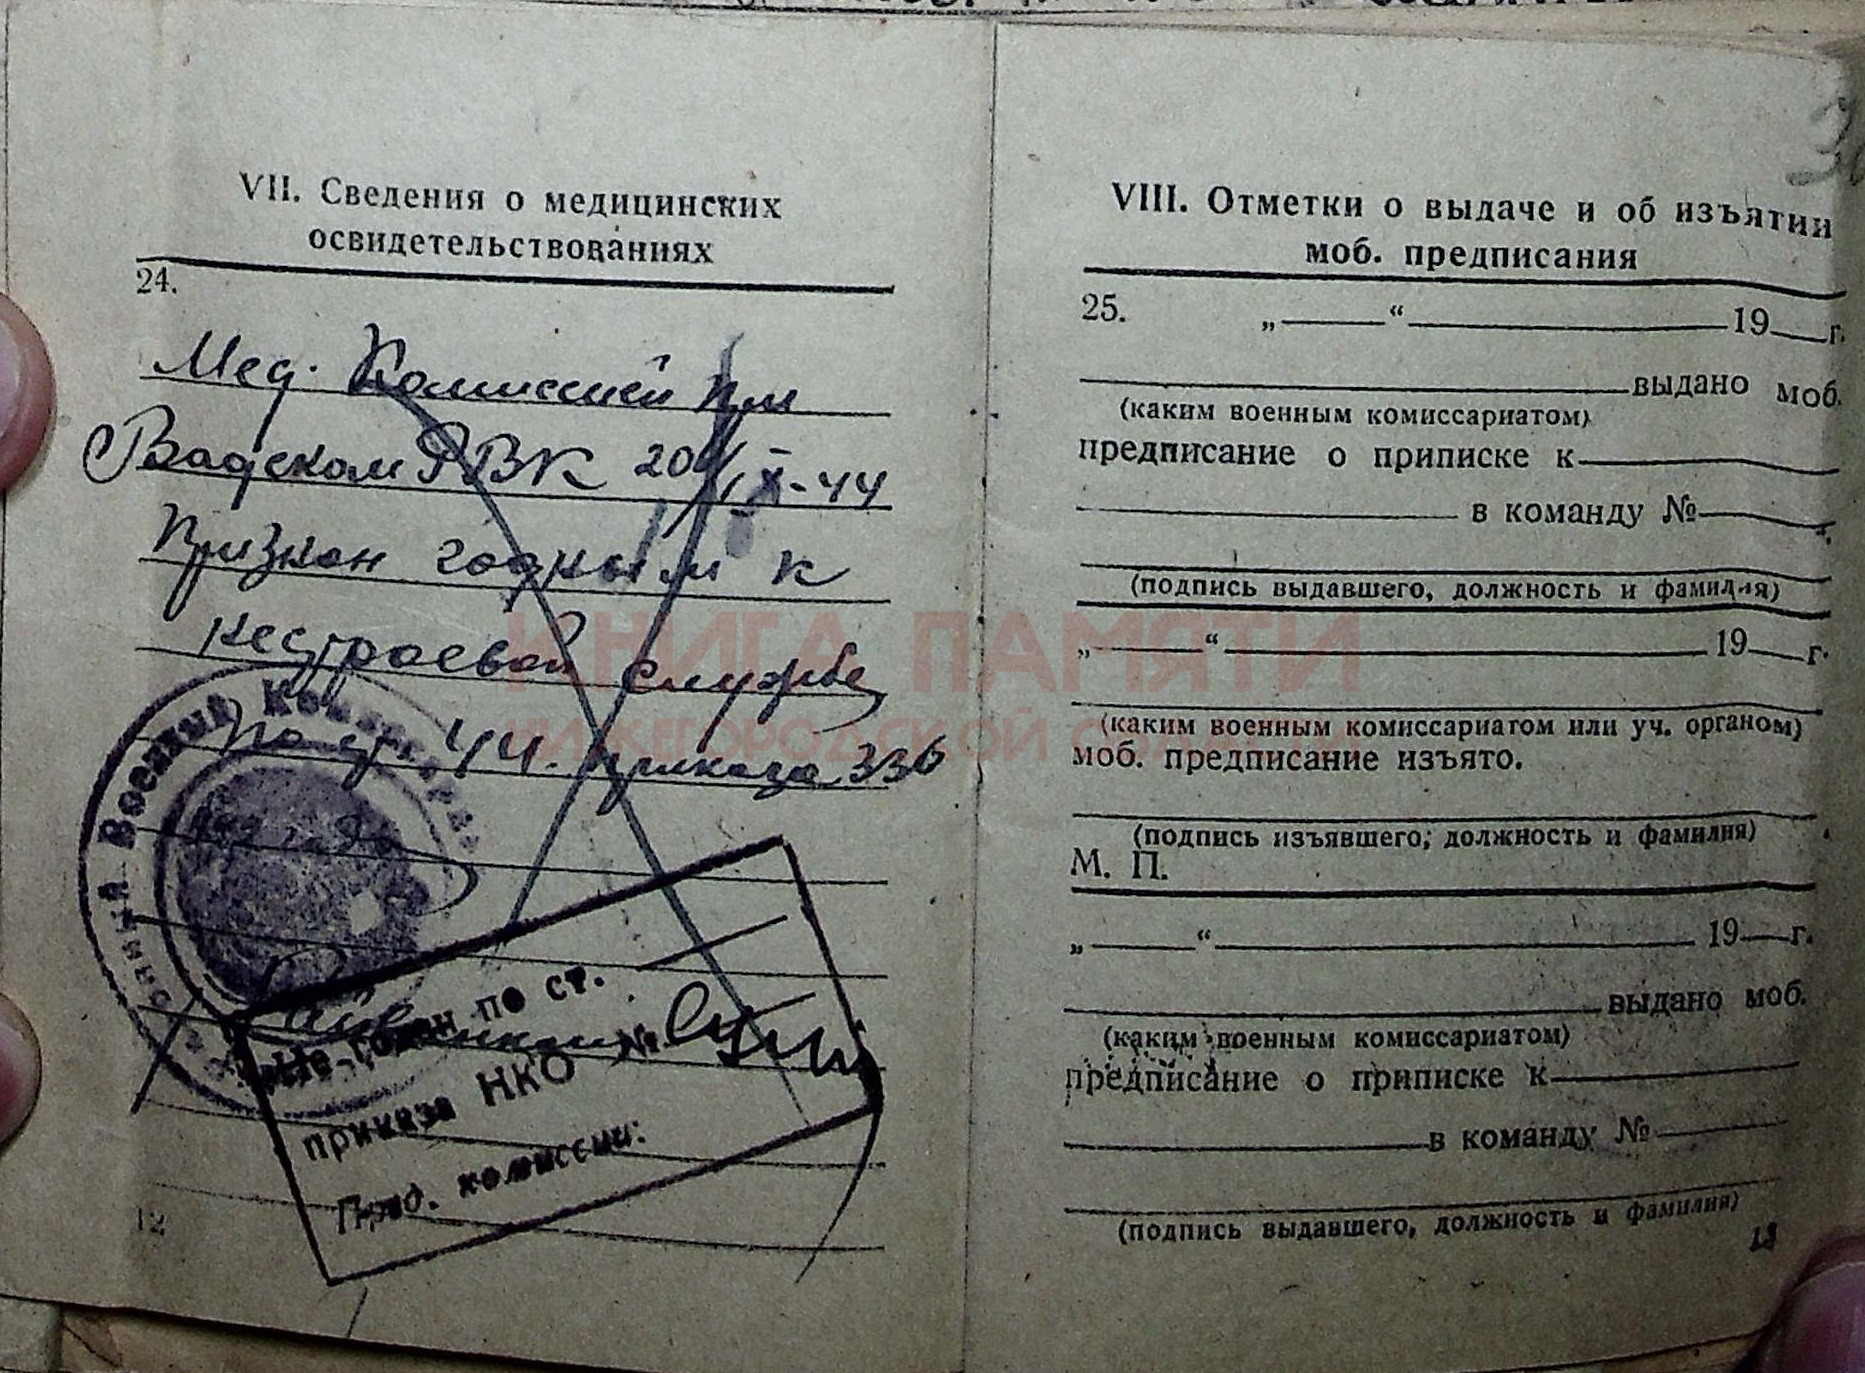 VII. Сведения о медицинских
освидетельствованиях
24.
Мед. Комиссией при
Вадском РВК 20/IX-44
Признан годным к
нестроевой службе
по ст. 44. приказа 336
Военный
Не годен по ст.
приказа НКО №
Пред. комиссии:
12
VIII. Отметки о выдаче и об изъятии
моб. предписания
25. „ “ 19 г.
выдано моб.
(каким военным комиссариатом)
предписание о приписке к
в команду №
(подпись выдавшего, должность и фамилия)
„ “ 19 г.
(каким военным комиссариатом или уч. органом)
моб. предписание изъято.
(подпись изъявшего; должность и фамилия)
М. П.
„ “ 19 г.
выдано моб.
(каким военным комиссариатом)
предписание о приписке к
в команду №
(подпись выдавшего, должность и фамилия)
13
КНИГА ПАМЯТИ
НИЖЕГОРОДСКОЙ